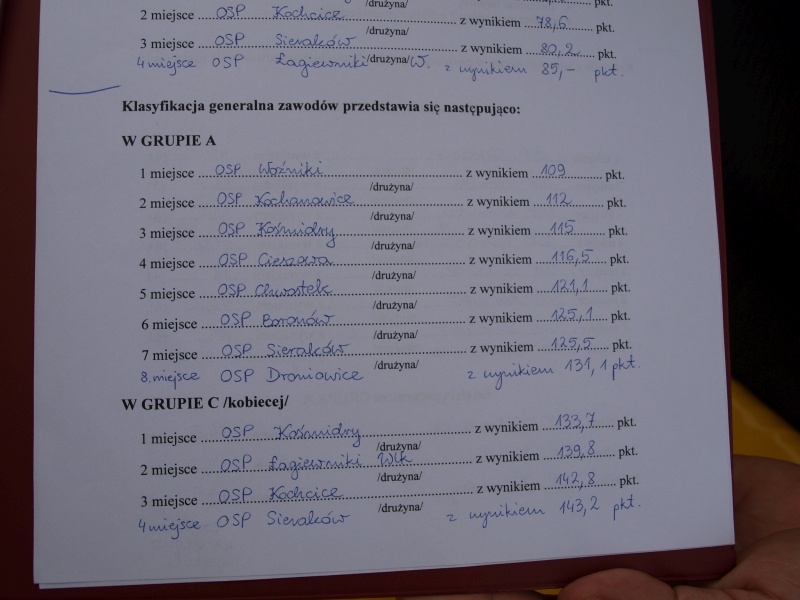 /drużyna/ pkt.
2 miejsce ... OSP Kochcice ... z wynikiem ... 78,6 ... pkt.
/drużyna/
3 miejsce ... OSP Sieraków ... z wynikiem ... 80,2 ... pkt.
4 miejsce OSP Łagiewniki /drużyna/ W. z wynikiem 85,- pkt.
Klasyfikacja generalna zawodów przedstawia się następująco:
W GRUPIE A
1 miejsce ... OSP Woźniki ... z wynikiem ... 109 ... pkt.
/drużyna/
2 miejsce ... OSP Kochanowice ... z wynikiem ... 112 ... pkt.
/drużyna/
3 miejsce ... OSP Kośmidry ... z wynikiem ... 115 ... pkt.
/drużyna/
4 miejsce ... OSP Cieszowa ... z wynikiem ... 116,5 ... pkt.
/drużyna/
5 miejsce ... OSP Chwostek ... z wynikiem ... 121,1 ... pkt.
/drużyna/
6 miejsce ... OSP Boronów ... z wynikiem ... 125,1 ... pkt.
/drużyna/
7 miejsce ... OSP Sieraków ... z wynikiem ... 125,5 ... pkt.
/drużyna/
8. miejsce OSP Droniowice z wynikiem 131,1 pkt.
W GRUPIE C /kobiecej/
1 miejsce ... OSP Kośmidry ... z wynikiem ... 133,7 ... pkt.
/drużyna/
2 miejsce ... OSP Łagiewniki Wlk ... z wynikiem ... 139,8 ... pkt.
/drużyna/
3 miejsce ... OSP Kochcice ... z wynikiem ... 142,8 ... pkt.
/drużyna/
4 miejsce OSP Sieraków z wynikiem 143,2 pkt.